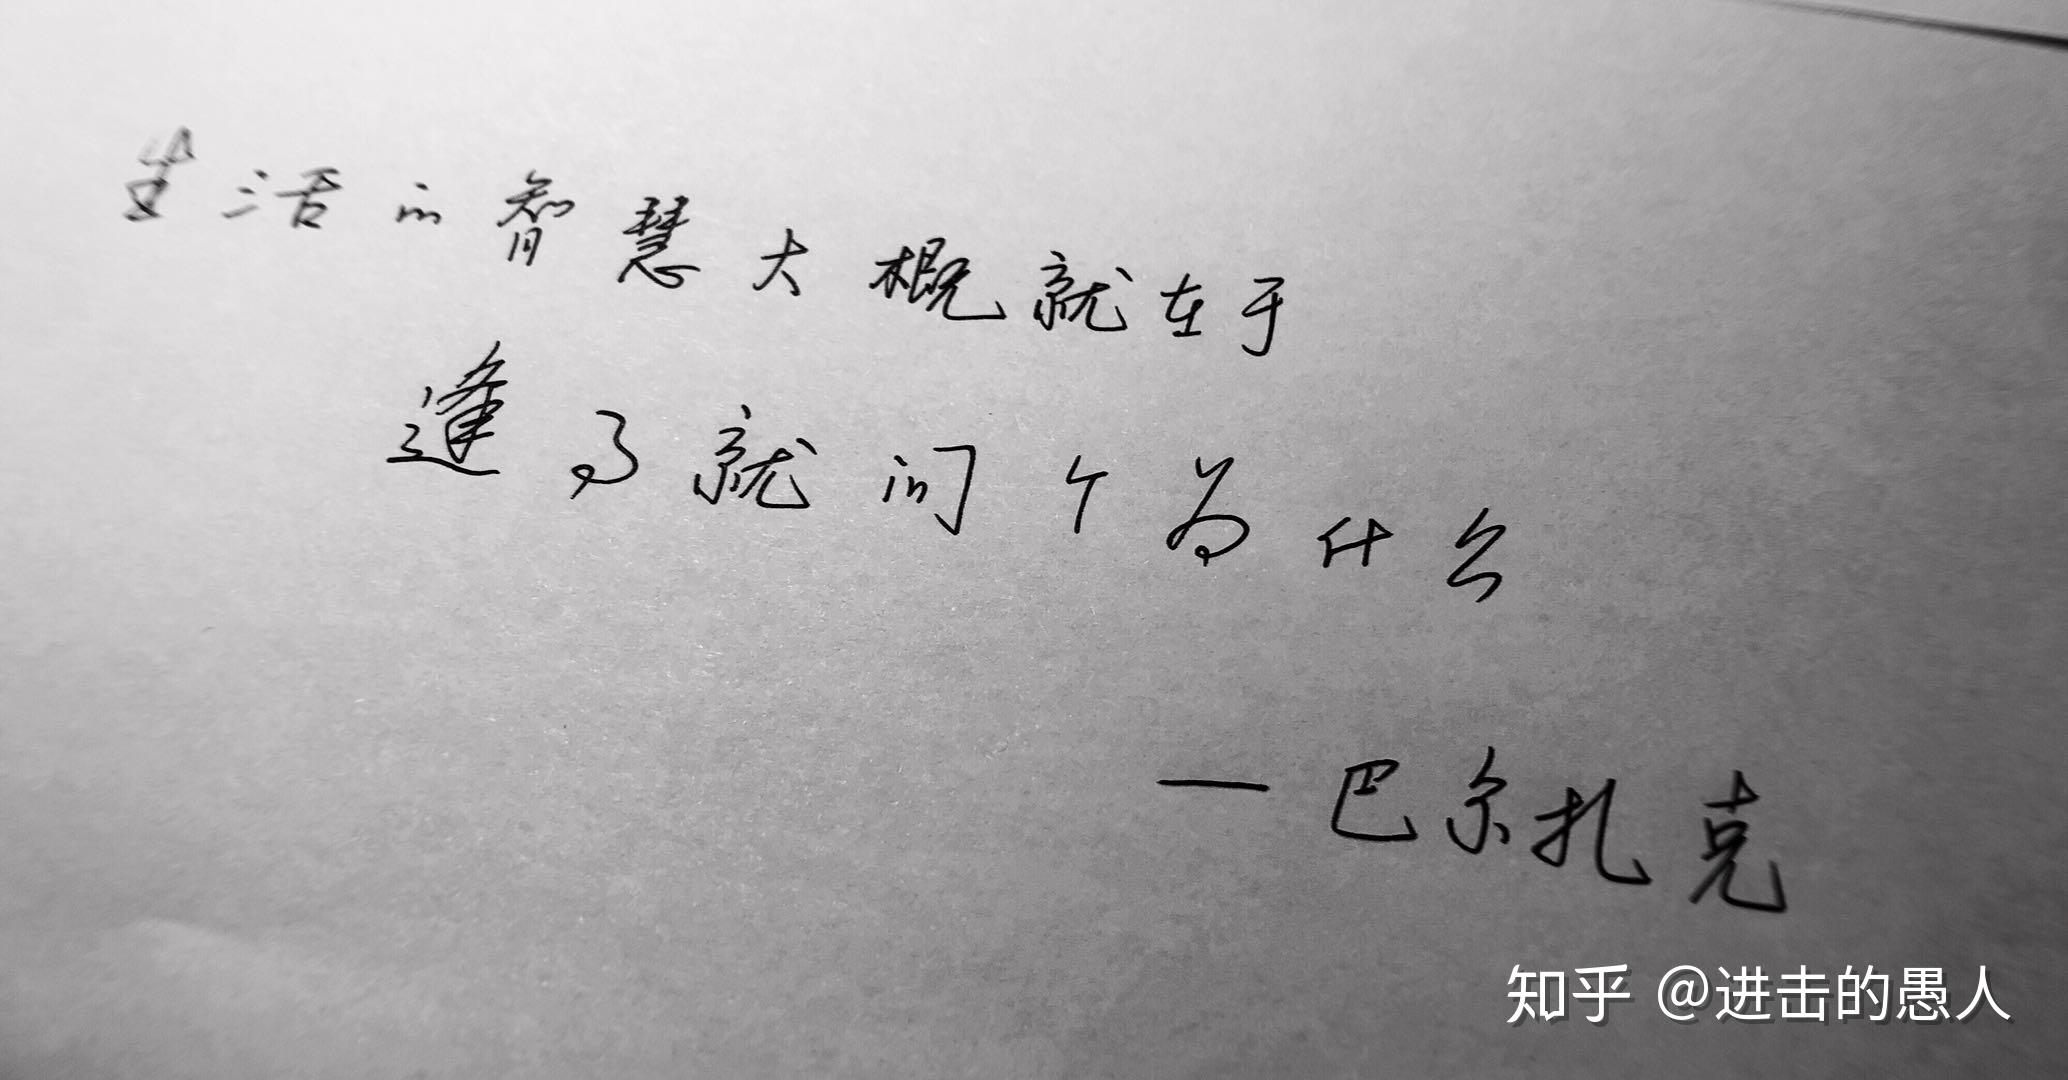 生活的智慧大概就在于
逢事就问个为什么
一巴尔扎克
知乎 @进击的愚人